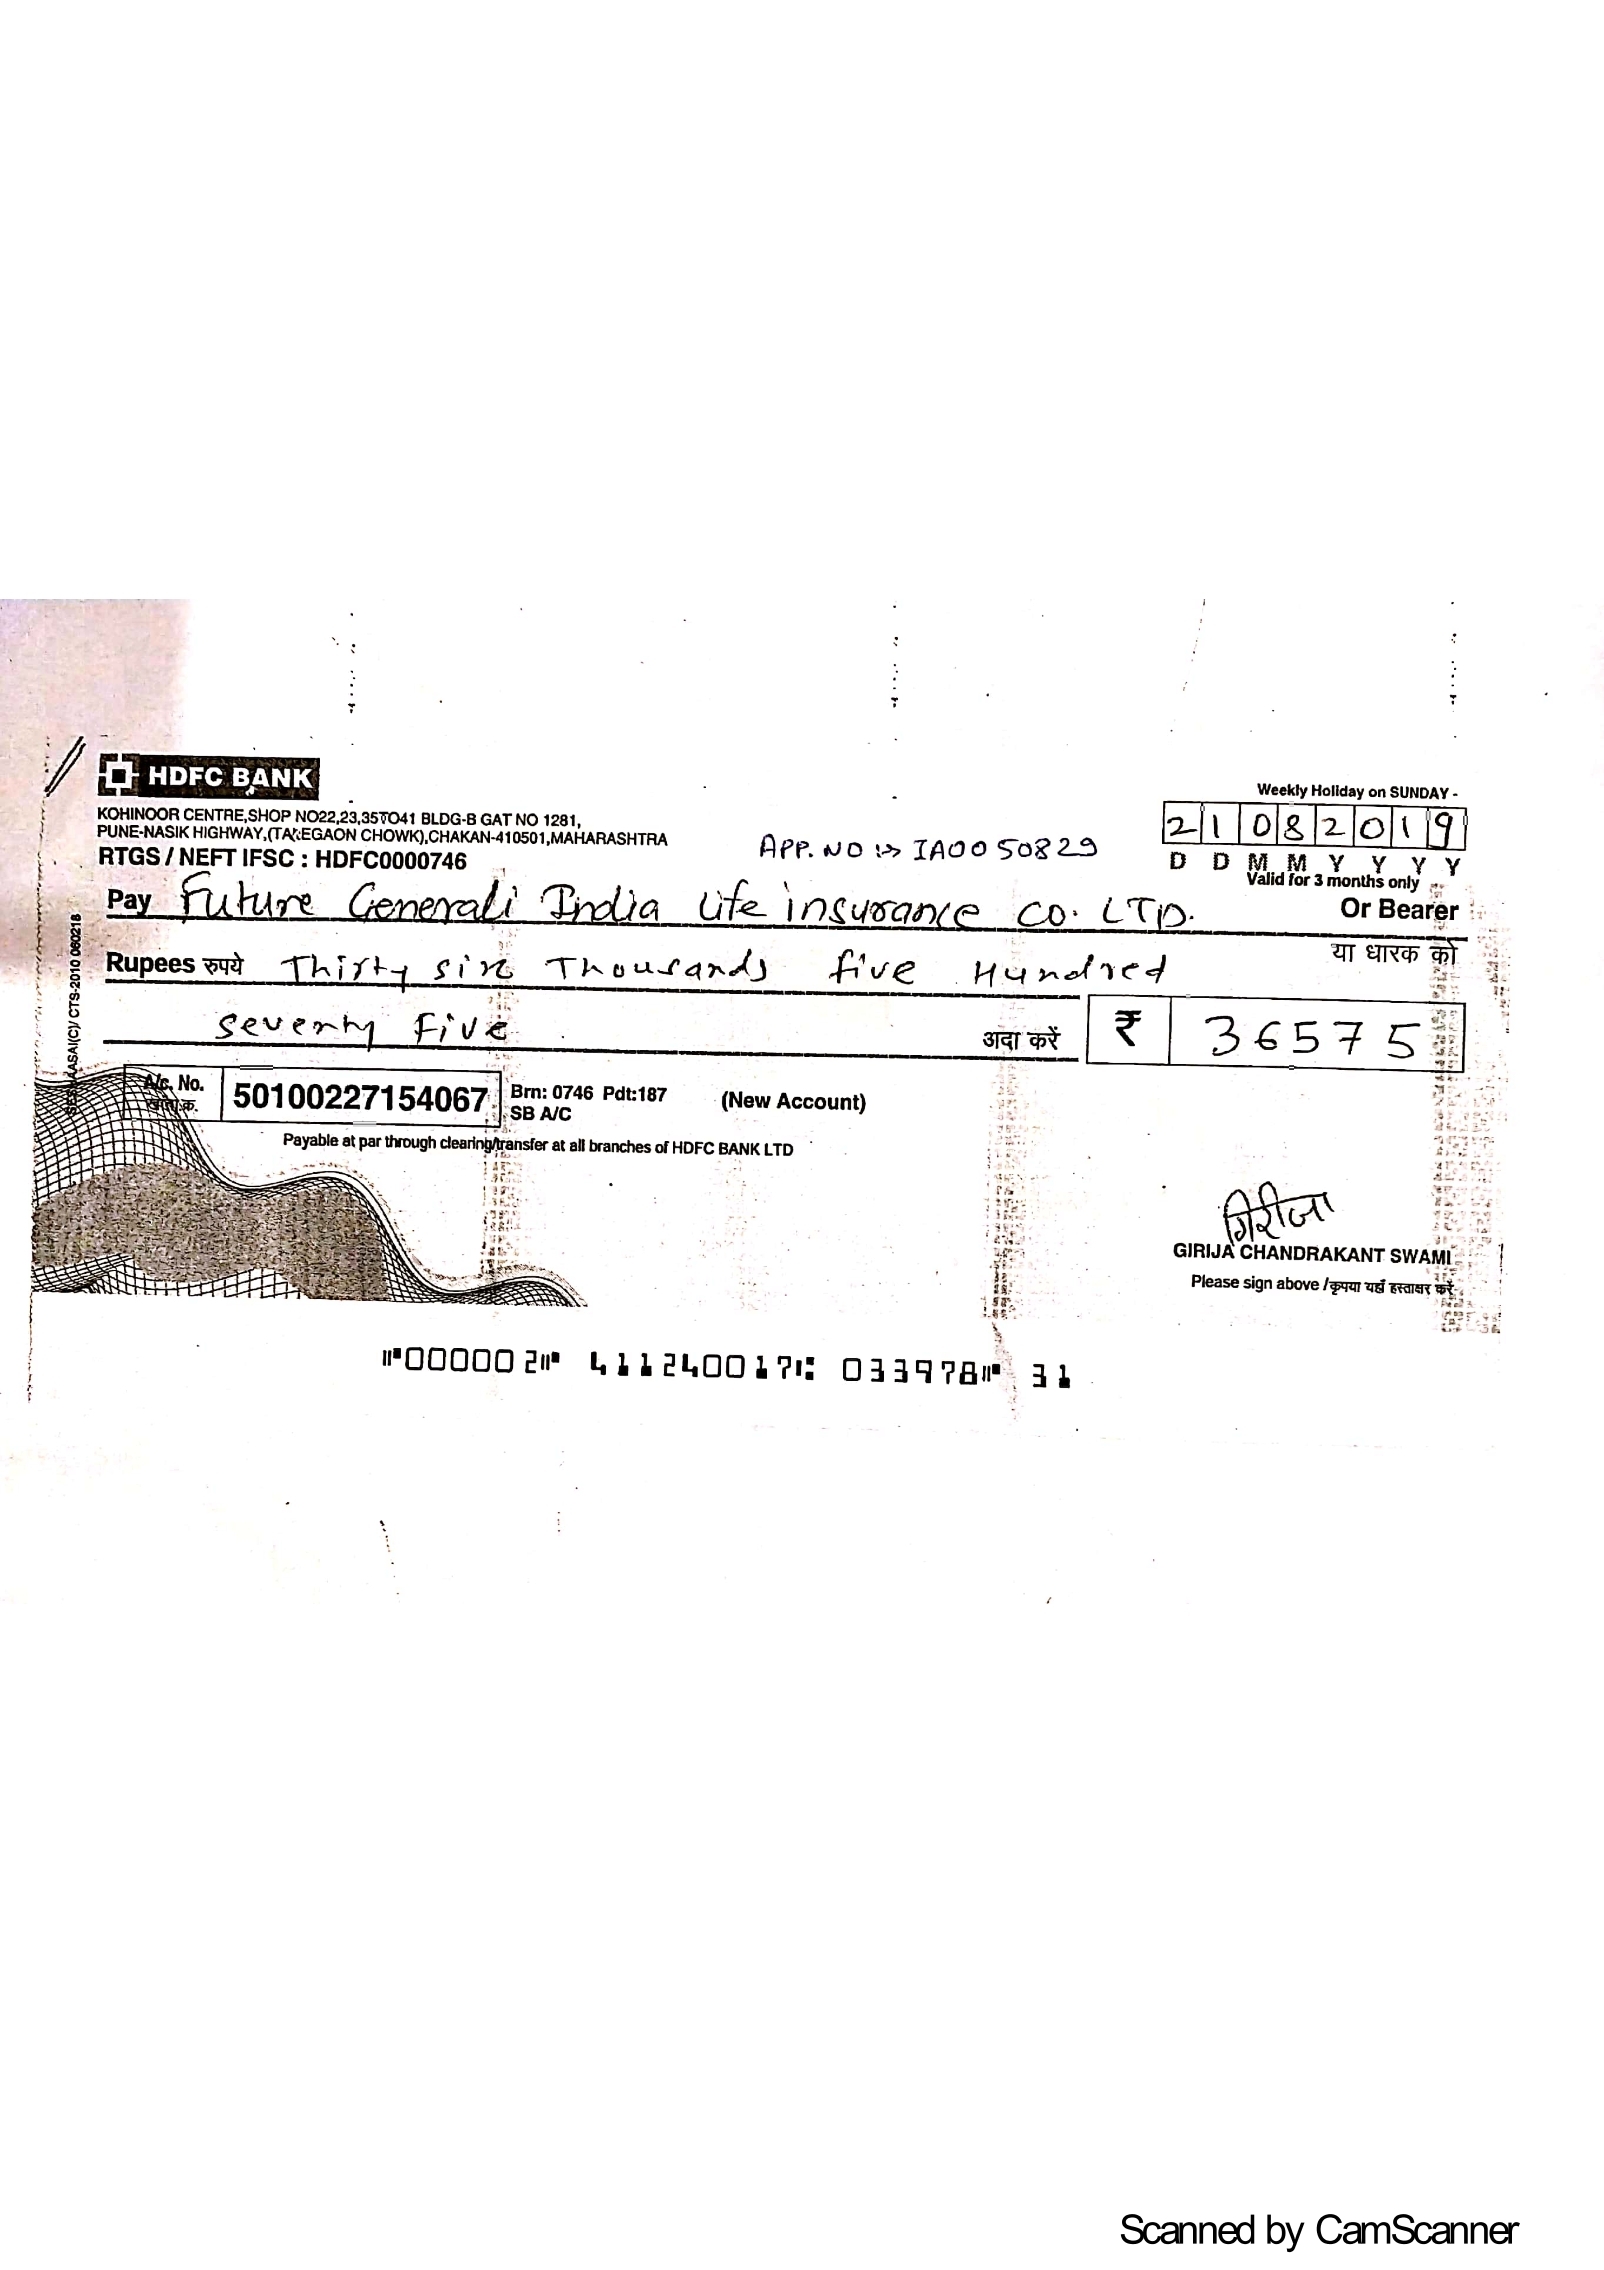 HDFC BANK
KOHINOOR CENTRE,SHOP NO22,23,35TO41 BLDG-B GAT NO 1281,
PUNE-NASIK HIGHWAY,(TALEGAON CHOWK),CHAKAN-410501,MAHARASHTRA
RTGS / NEFT IFSC : HDFC0000746
APP. NO :-> IA0050829
Weekly Holiday on SUNDAY -
21082019
D D M M Y Y Y Y
Valid for 3 months only
Pay Future Generali India Life insurance CO. LTD. Or Bearer
या धारक को
Rupees रुपये Thirty six Thousands five Hundred
seventy Five अदा करें ₹ 36575
A/c. No. 50100227154067 Brn: 0746 Pdt:187 (New Account)
SB A/C
Payable at par through clearing/transfer at all branches of HDFC BANK LTD
गिरीजा
GIRIJA CHANDRAKANT SWAMI
Please sign above / कृपया यहाँ हस्ताक्षर करें
CTS-2010 060218
⑈000002⑈ 411240017⑆ 033978⑈ 31
Scanned by CamScanner